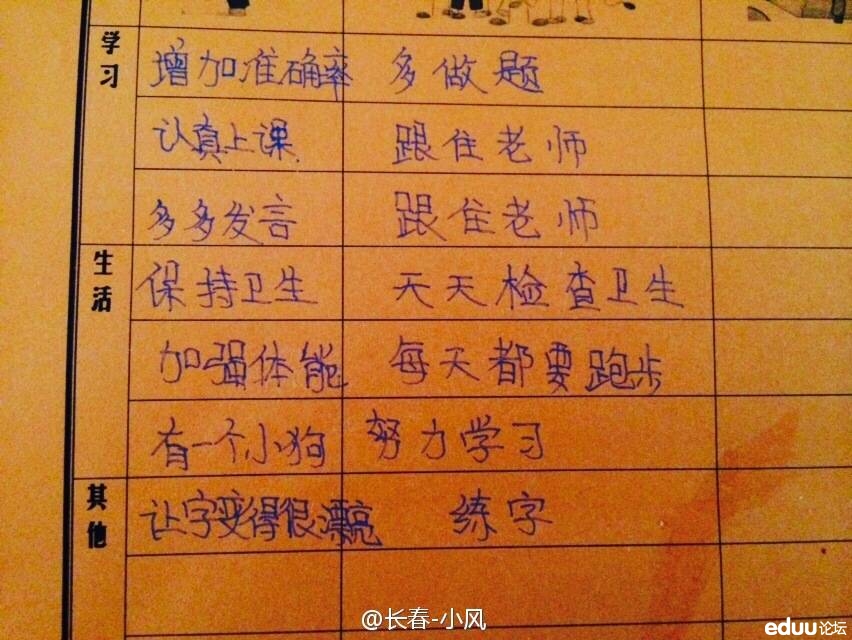 学习 增加准确率 多做题
认真上课 跟住老师
多多发言 跟住老师
生活 保持卫生 天天检查卫生
加强体能 每天都要跑步
有一个小狗 努力学习
其他 让字变得很漂亮 练字
@长春-小风
eduu论坛